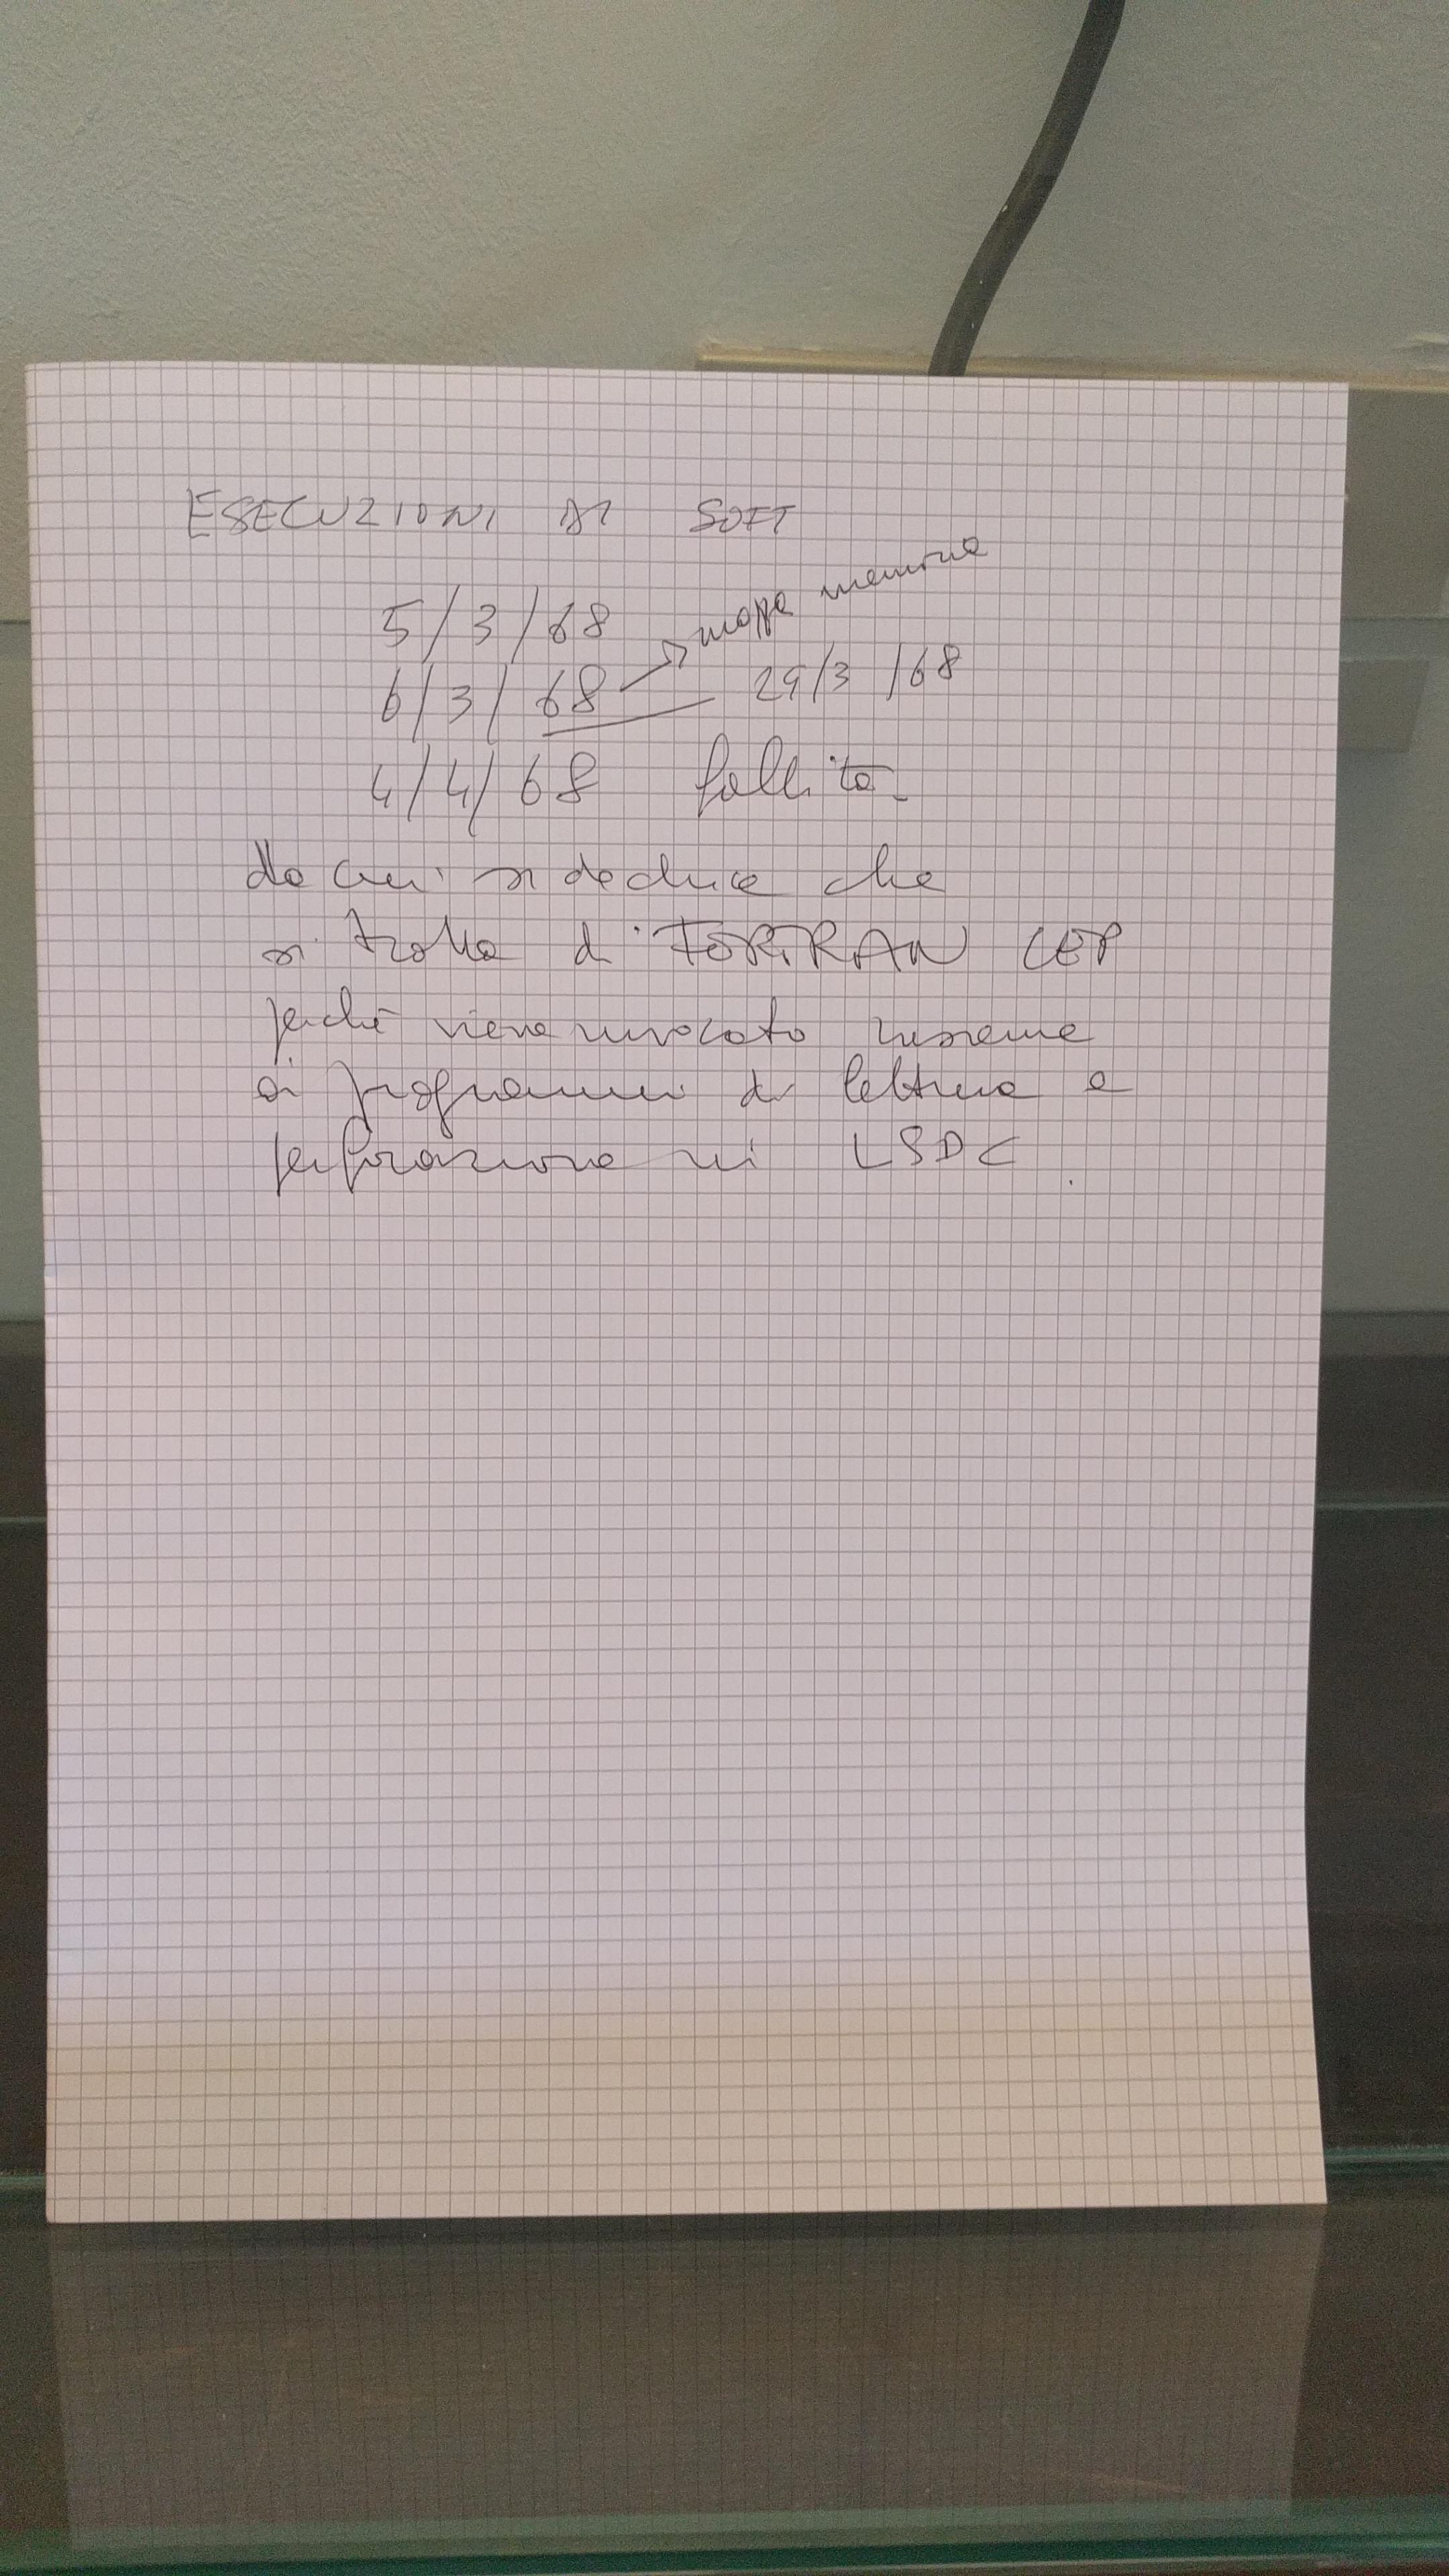 ESECUZIONI DI SOFT
mappa memoria
5/3/68
6/3/68 29/3/68
4/4/68 fallita
da cui si deduce che
si tratta di FORTRAN CEP
perché viene invocato insieme
ai programmi di lettura e
perforazione in LSDC.